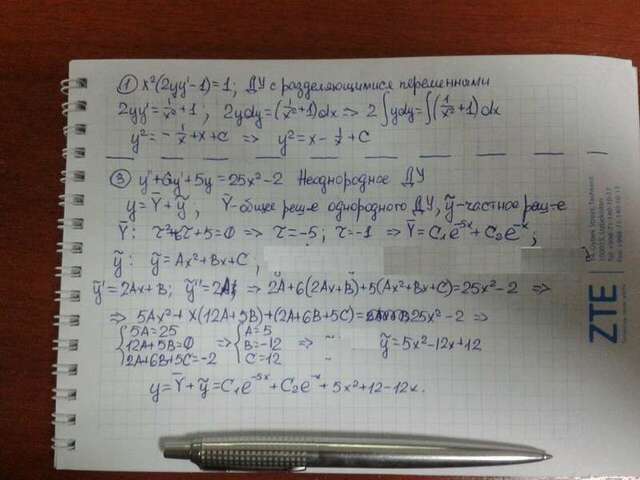 ① x²(2yy'-1)=1; ДУ с разделяющимися переменными
2yy'=1/x²+1; 2ydy=(1/x²+1)dx ⇒ 2∫ydy=∫(1/x²+1)dx
y²=-1/x+x+C ⇒ y²=x-1/x+C
③ y''+6y'+5y=25x²-2 Неоднородное ДУ
y=Y̅+ỹ, Y̅-общее реш-е однородного ДУ, ỹ-частное реш-е
Y̅: r²+6r+5=0 ⇒ r=-5; r=-1 ⇒ Y̅=C₁e^-5x+C₂e^-x;
ỹ: ỹ=Ax²+Bx+C;
ỹ'=2Ax+B; ỹ''=2A; ⇒ 2A+6(2Ax+B)+5(Ax²+Bx+C)=25x²-2 ⇒
⇒ 5Ax²+x(12A+5B)+(2A+6B+5C)=25x²-2 ⇒
{5A=25 {A=5
12A+5B=0 ⇒ B=-12 ⇒ ỹ=5x²-12x+12
2A+6B+5C=-2 C=12
y=Y̅+ỹ=C₁e^-5x+C₂e^-x+5x²+12-12x.
ZTE